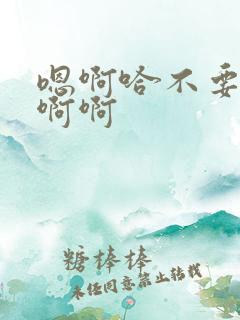 嗯啊哈不要
啊啊
糖棒棒
未经同意禁止转载